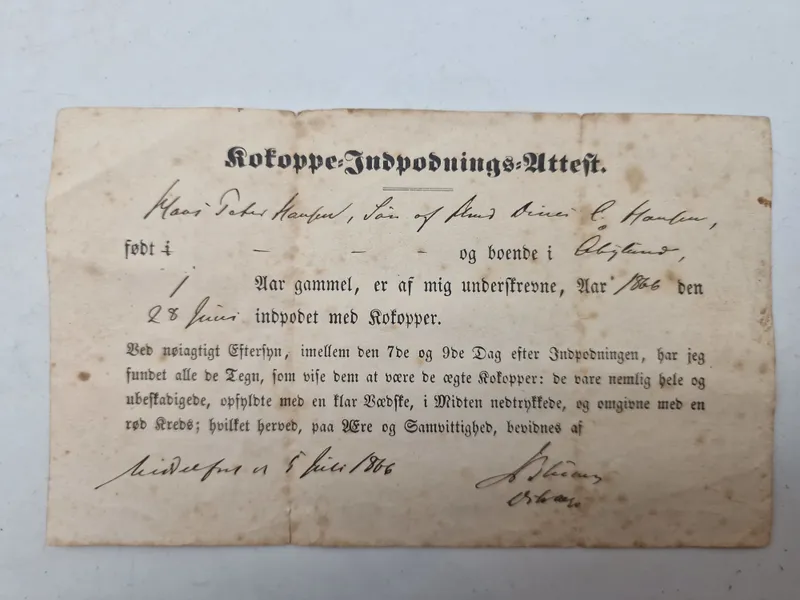 Kokoppe-Indpodnings-Attest.
Hans Peter Hansen, Søn af Dines C. Hansen,
født i — — — — og boende i
1 Aar gammel, er af mig underskrevne, Aar 1866 den
28 Juni indpodet med Kokopper.
Ved nøiagtigt Eftersyn, imellem den 7de og 9de Dag efter Indpodningen, har jeg
fundet alle de Tegn, som vise dem at være de ægte Kokopper: de vare nemlig hele og
ubeskadigede, opfyldte med en klar Vædske, i Midten nedtrykkede, og omgivne med en
rød Kreds; hvilket herved, paa Ære og Samvittighed, bevidnes af
Middelfart 5 Juli 1866